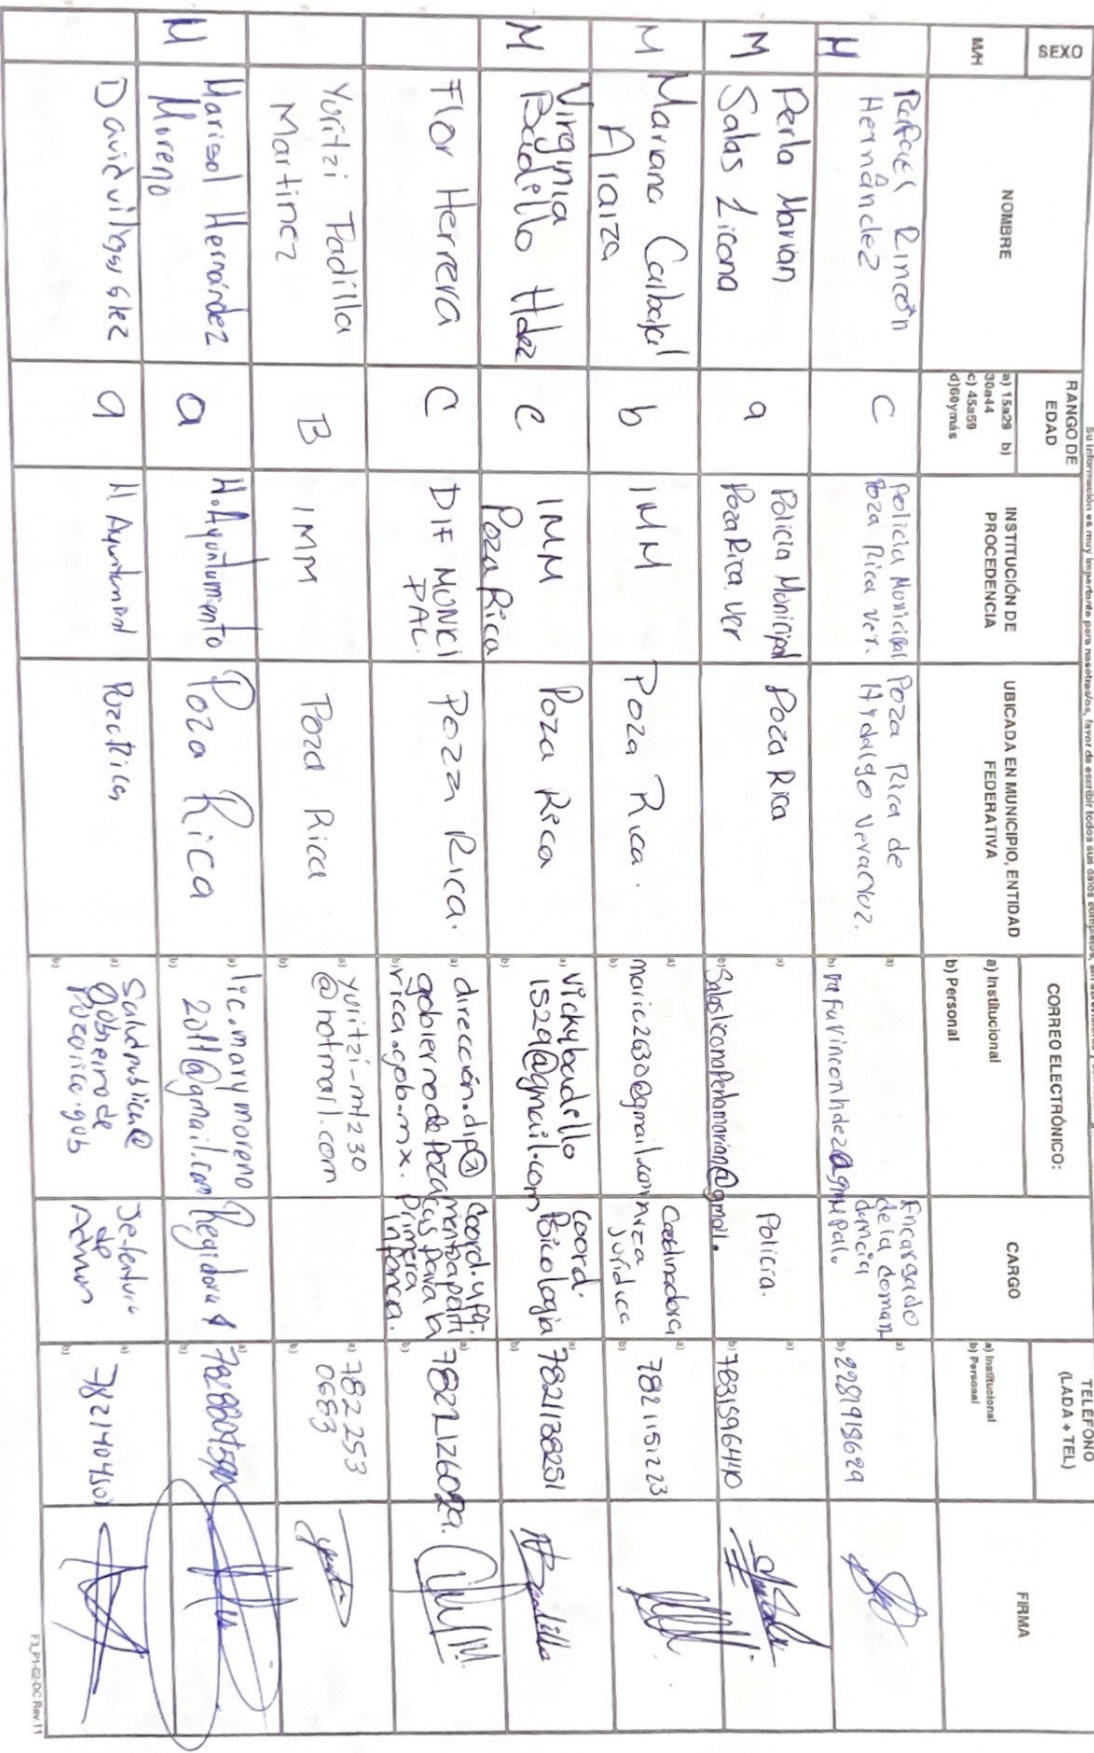 SEXO
M/H
NOMBRE
RANGO DE
EDAD
a) 15a29 b)
30a44
c) 45a59
d)60ymás
INSTITUCIÓN DE
PROCEDENCIA
UBICADA EN MUNICIPIO, ENTIDAD
FEDERATIVA
CORREO ELECTRÓNICO:
a) Institucional
b) Personal
CARGO
TELÉFONO
(LADA + TEL)
a) Institucional
b) Personal
FIRMA
H
Rafael Rincón
Hernández
C
Policia Municipal
Poza Rica Ver.
Poza Rica de
Hidalgo Veracruz.
a)
b)
Encargado
de la coman
dancia
a)
b) 2281918629
M
Perla Marian
Salas Licona
a
Policia Municipal
Poza Rica. Ver
Poza Rica
a)
b) Salasliconaperlamarian@gmail.
Policía.
a)
b) 7831596440
M
Mariana Carbajal
Araiza
b
IMM
Poza Rica.
a)
b)
Coordinadora
Jurídica
a)
b) 7821151223
M
Virginia
Badillo Hdez
c
IMM
Poza Rica
Poza Rica
a) vickybadillo
b) 1529@gmail.com
Coord.
Psicologia
a) 7821138251
b)
Flor Herrera
C
DIF MUNICI
PAL.
Poza Rica.
a) dirección.dif@
gobiernodepoza
b) rica.gob.mx.
Primera
Infancia.
a)
b)
Yuritzi Padilla
Martinez
B
IMM
Poza Rica
a) yuritzi-m1230
@hotmail.com
b)
a) 782 253
0683
b)
M
Marisol Hernández
Moreno
a
H. Ayuntamiento
Poza Rica
a) lic.marymoreno
2011@gmail.com
b)
Regidora
a)
b)
David villegas Glez
a
H. Ayuntamient
Poza Rica
a) Saludpublica@
gobierno de
b) pozarica.gob
Jefatura
de
Admon
a)
b)
F3_P1-02-DC Rev.11